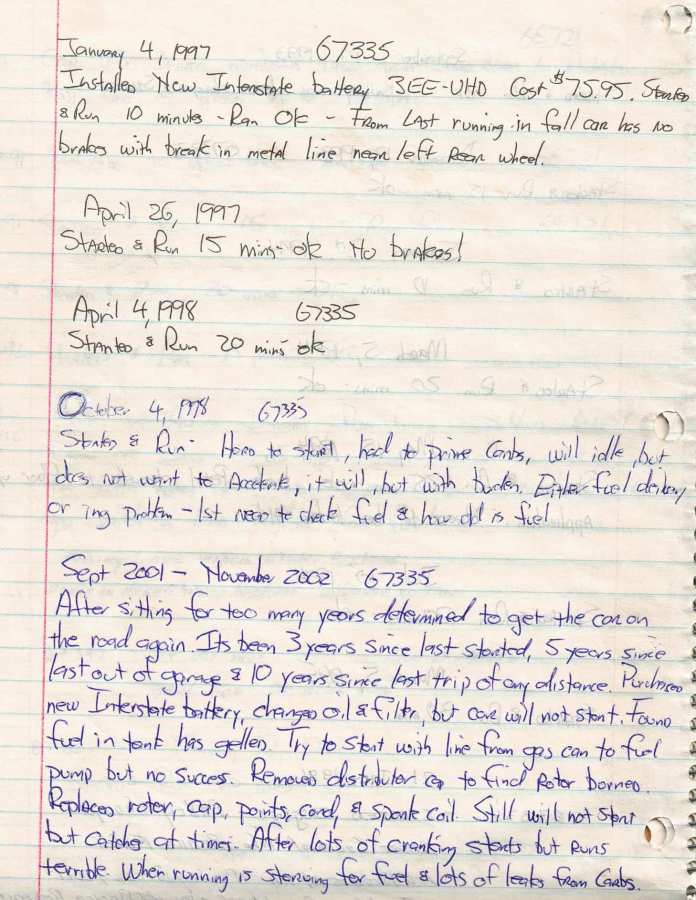 January 4, 1997 67335
Installed New Interstate battery 3EE-UHD Cost $75.95. Started
& Run 10 minutes - Ran Ok - From Last running in fall car has no
brakes with break in metal line near left Rear wheel.
April 26, 1997
Started & Run 15 mins- ok No brakes!
April 4, 1998 67335
Started & Run 20 mins- ok
October 4, 1998 67335
Started & Run - Hard to start, had to prime Carbs, will idle, but
does not want to Accelerate, it will, but with burden. Either fuel delivery
or ing problem - 1st need to check fuel & how old is fuel
Sept 2001 - November 2002 67335
After sitting for too many years determined to get the car on
the road again. Its been 3 years since last started, 5 years since
last out of garage & 10 years since last trip of any distance. Purchased
new Interstate battery, changed oil & filtr, but car will not start. Found
fuel in tank has gelled. Try to start with line from gas can to fuel
pump but no success. Removed distributer cap to find Rotor borned.
Replaced rotor, cap, points, cond, & spark coil. Still will not start
but catches at times. After lots of cranking starts but runs
terrible. When running is sterving for fuel & lots of leaks from Carbs.